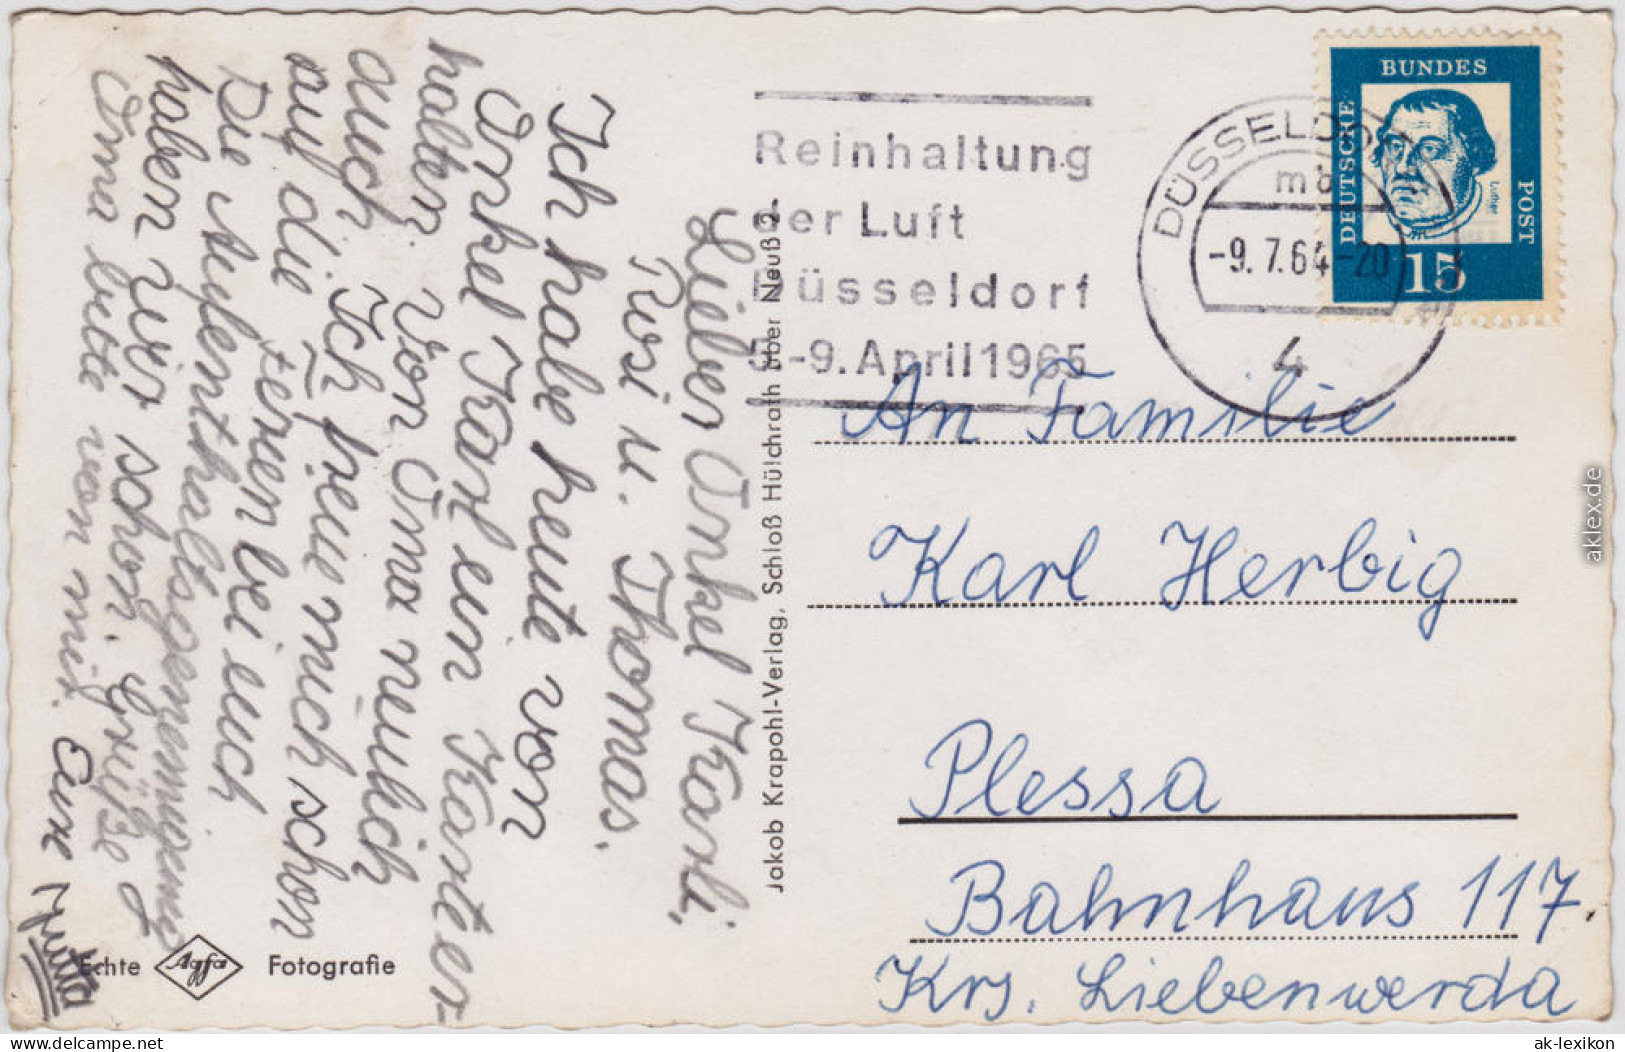 Lieber Onkel Karli,
Rosi u. Thomas.
Ich habe heute von
Onkel Karl ein Karter
halten. Von Oma neulich
auch. Ich freue mich schon
auf die Ferien bei euch
Die Aufenthaltsgenemigung
haben wir schon. Grüße
Oma bitte von mir. Eure Jutta
Echte Agfa Fotografie
Jakob Krapohl-Verlag, Schloß Hülchrath über Neuß 2
Reinhaltung
der Luft
Düsseldorf
5.-9. April 1965
DÜSSELDORF
mb
-9.7.64-20
4
DEUTSCHE BUNDES POST
Luther
15
An Familie
Karl Herbig
Plessa
Bahnhaus 117.
Krs. Liebenwerda
aklex.de
www.delcampe.net
ak-lexikon